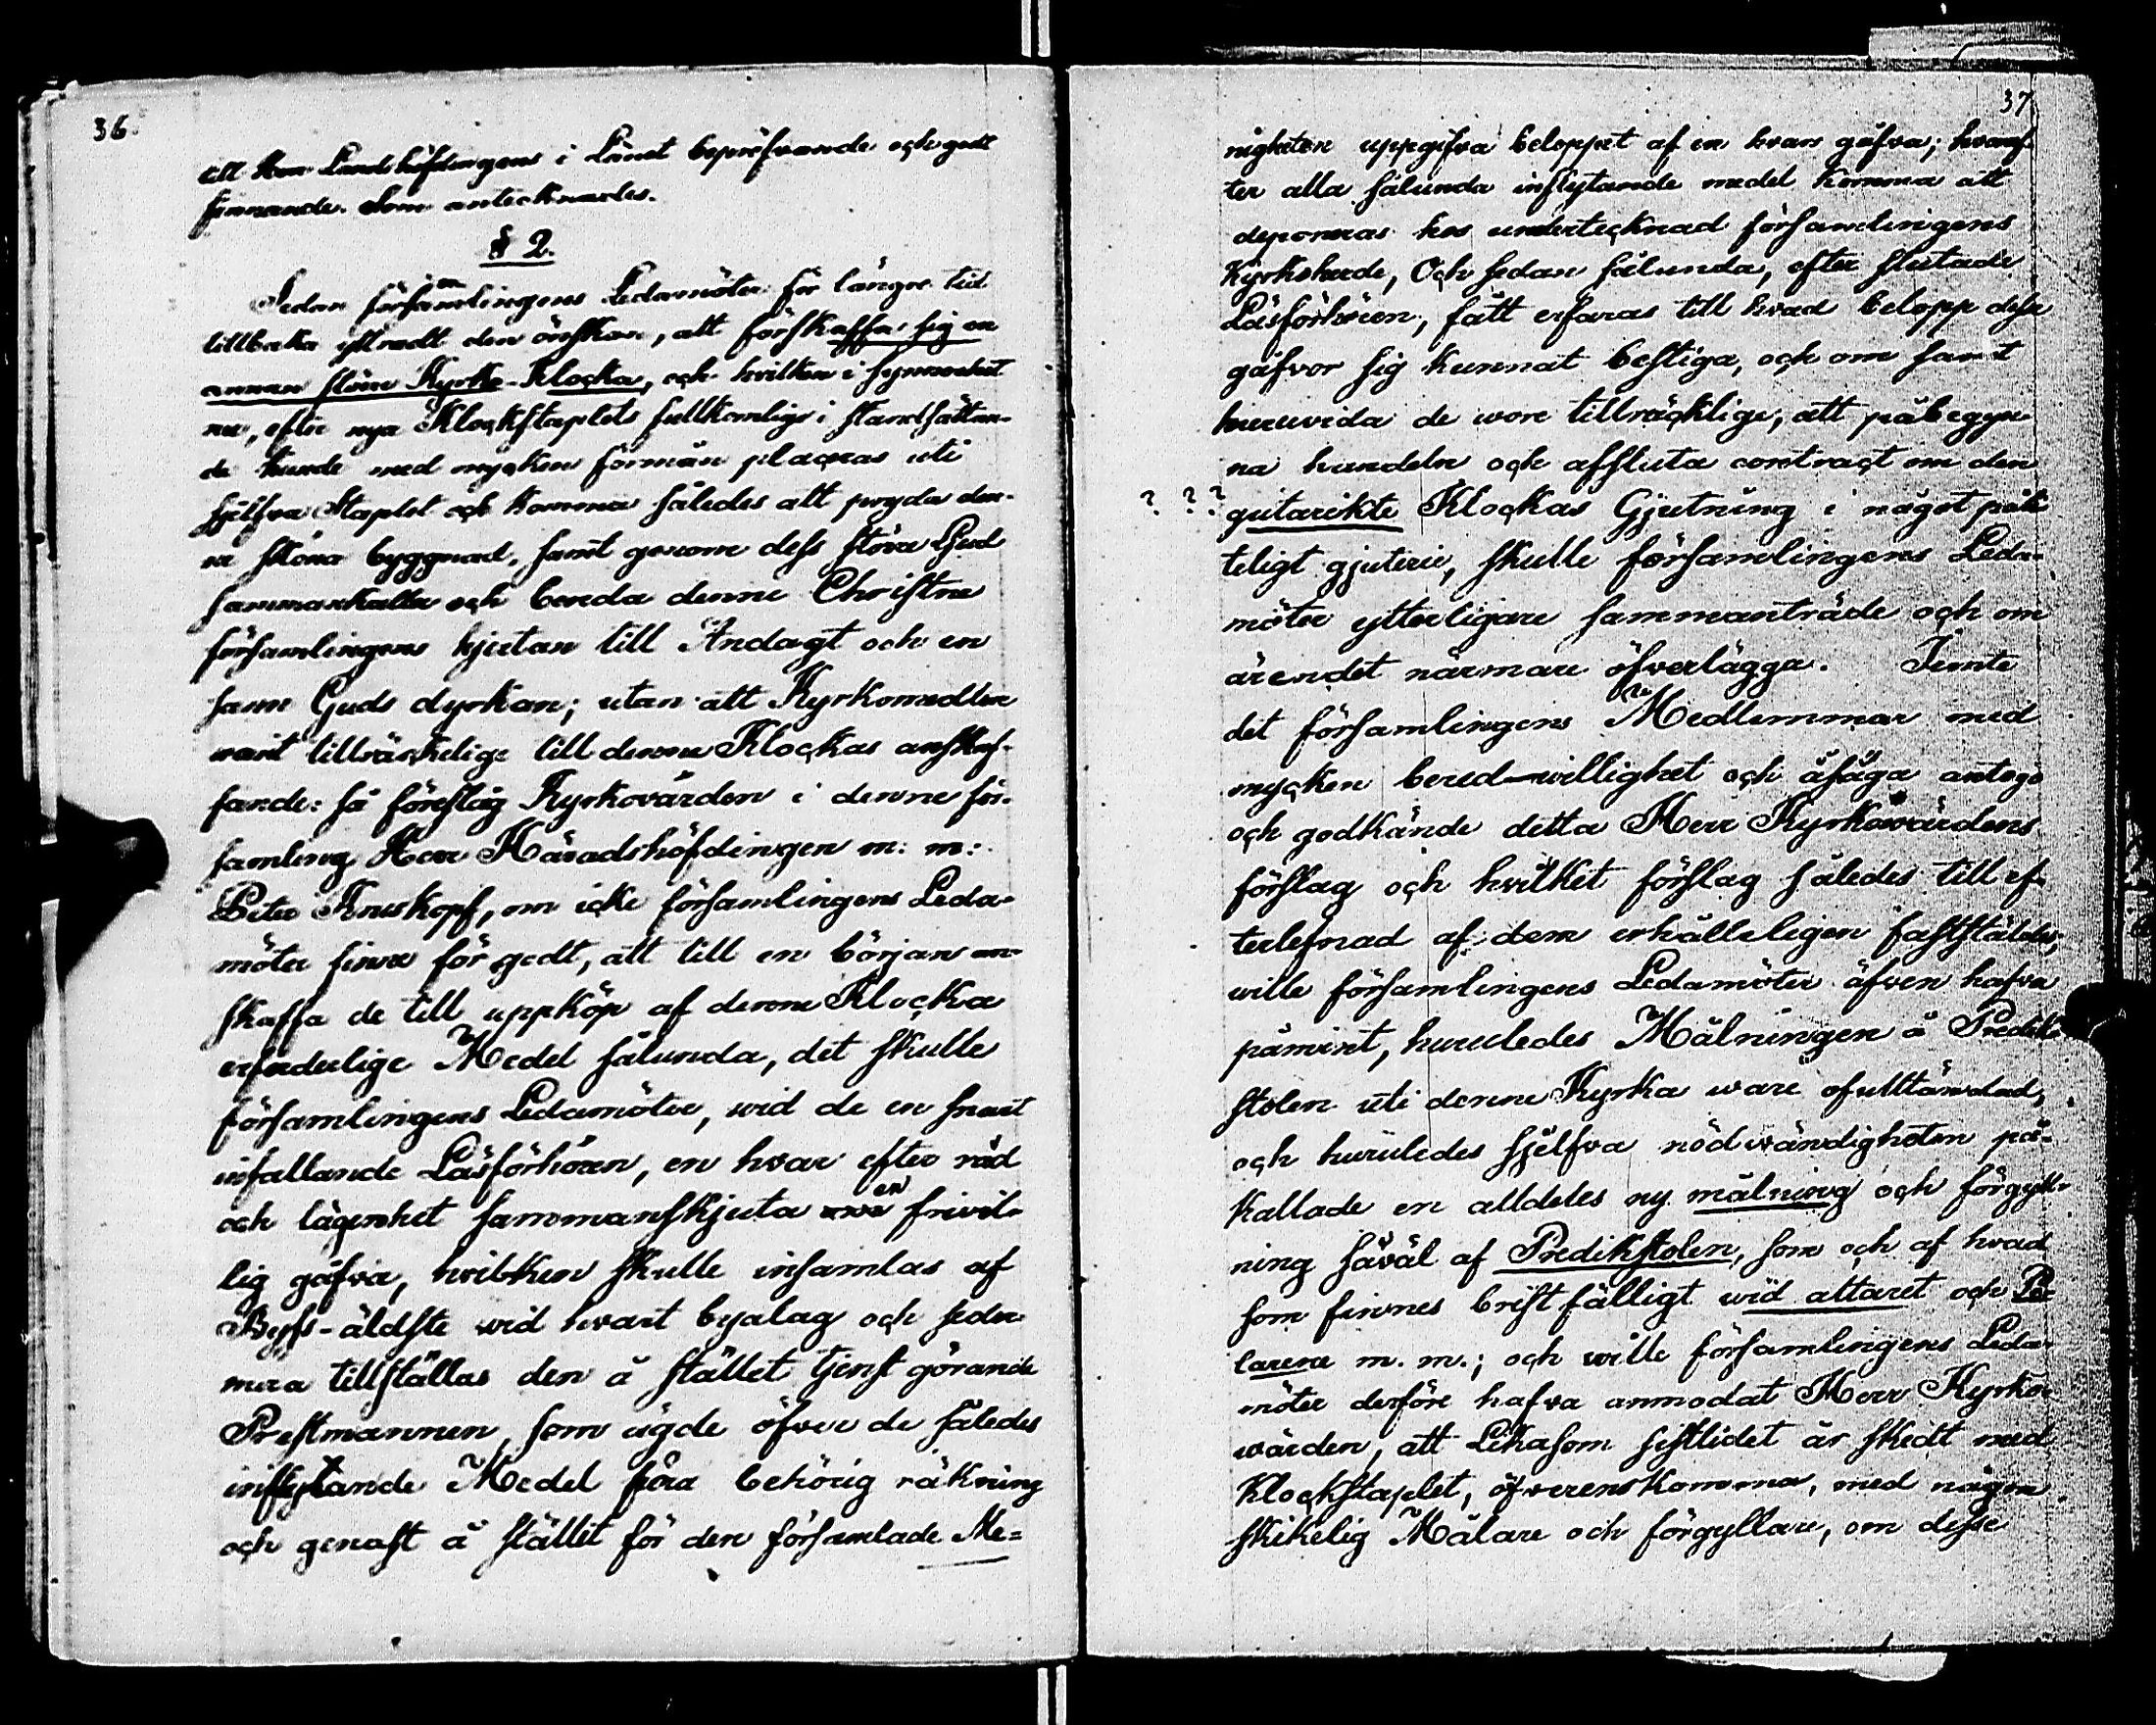 36.
till Herr Landshöfdingens i Länet bepröfvande och godt
finnande. Som antecknades.
§ 2.
Sedan församlingens Ledamöter för längre tid
tillbaka yttradt den önskan, att förskaffa sig en
annan större Kyrko-Klocka, och hvilken i synnerhet
nu, efter nya Klockstaplets fullkomliga iståndsättan-
de kunde med mycken förmån placeras uti
sjelfva Staplet och komma således att pryda den-
na sköna byggnad, samt genom dess störa Ljud
sammankalla och bereda denne Christna
församlingens hjertan till Andagt och en
sann Guds dyrkan; utan att Kyrkomedlen
varit tillräckelige till denna Klockas anskaf-
fande: så föreslog Kyrkovärden i denne för-
samling Herr Häradshöfdingen m: m:
Peter Kruskopf, om icke församlingens Leda-
möter finna för godt, att till en början an-
skaffa de till uppköp af denna Klocka
erforderlige Medel sålunda, det skulle
församlingens Ledamöter, wid de en snart
infallande Läsförhören, en hvar efter råd
och lägenhet sammanskjuta en frivil-
lig gåfva, hvilken skulle insamlas af
Byss-äldste wid hvart byalag och seder-
mera tillställas den å stället tjenst görande
Prestmannen, som ägde öfver de således
inflytande Medel föra behörig räkning
och genast å stället för den församlade Me=
37
nigheten uppgifva beloppet af en hvars gåfva; hvaref-
ter alla sålunda inflytande medel komma att
deponeras hos undertecknad församlingens
Kyrkoherde, Och sedan sålunda, efter slutade
Läsförhören, fått erfaras till hvad belopp dessa
gåfvor sig kunnat bestiga, och om samt
huruvida de wore tillräcklige, att påbegyn-
na handeln och afsluta contract om den
? ? ? gutarikte Klockas Gjutning i något påli
teligt gjuterie, skulle församlingens Leda-
möter ytterligare sammanträde och om
ärendet närmare öfverlägga. Jemte
det församlingens Medlemmar med
mycken bered-willighet och åsåga antogo
och godkände detta Herr Kyrkowärdens
förslag och hvilket förslag således till ef-
terlefnad af dem enhälleligen fastställdes,
wille församlingens Ledamöter äfven hafva
påmint, huruledes Målningen å Prediko-
stolen uti denne Kyrka ware ofulltändad,
och huruledes sjelfva nödwändigheten på-
kallade en alldeles ny målning och förgyll-
ning såväl af Predikstolen, som och af hvad
som finnes bristfälligt wid altaret och Pe-
larena m. m.; och wille församlingens Leda-
möter derföre hafva anmodat Herr Kyrko-
wärden, att Likasom sistlidet år skedt med
Klockstaplet, öfverenskomma, med någon
skikelig Målare och förgyllare, om desse